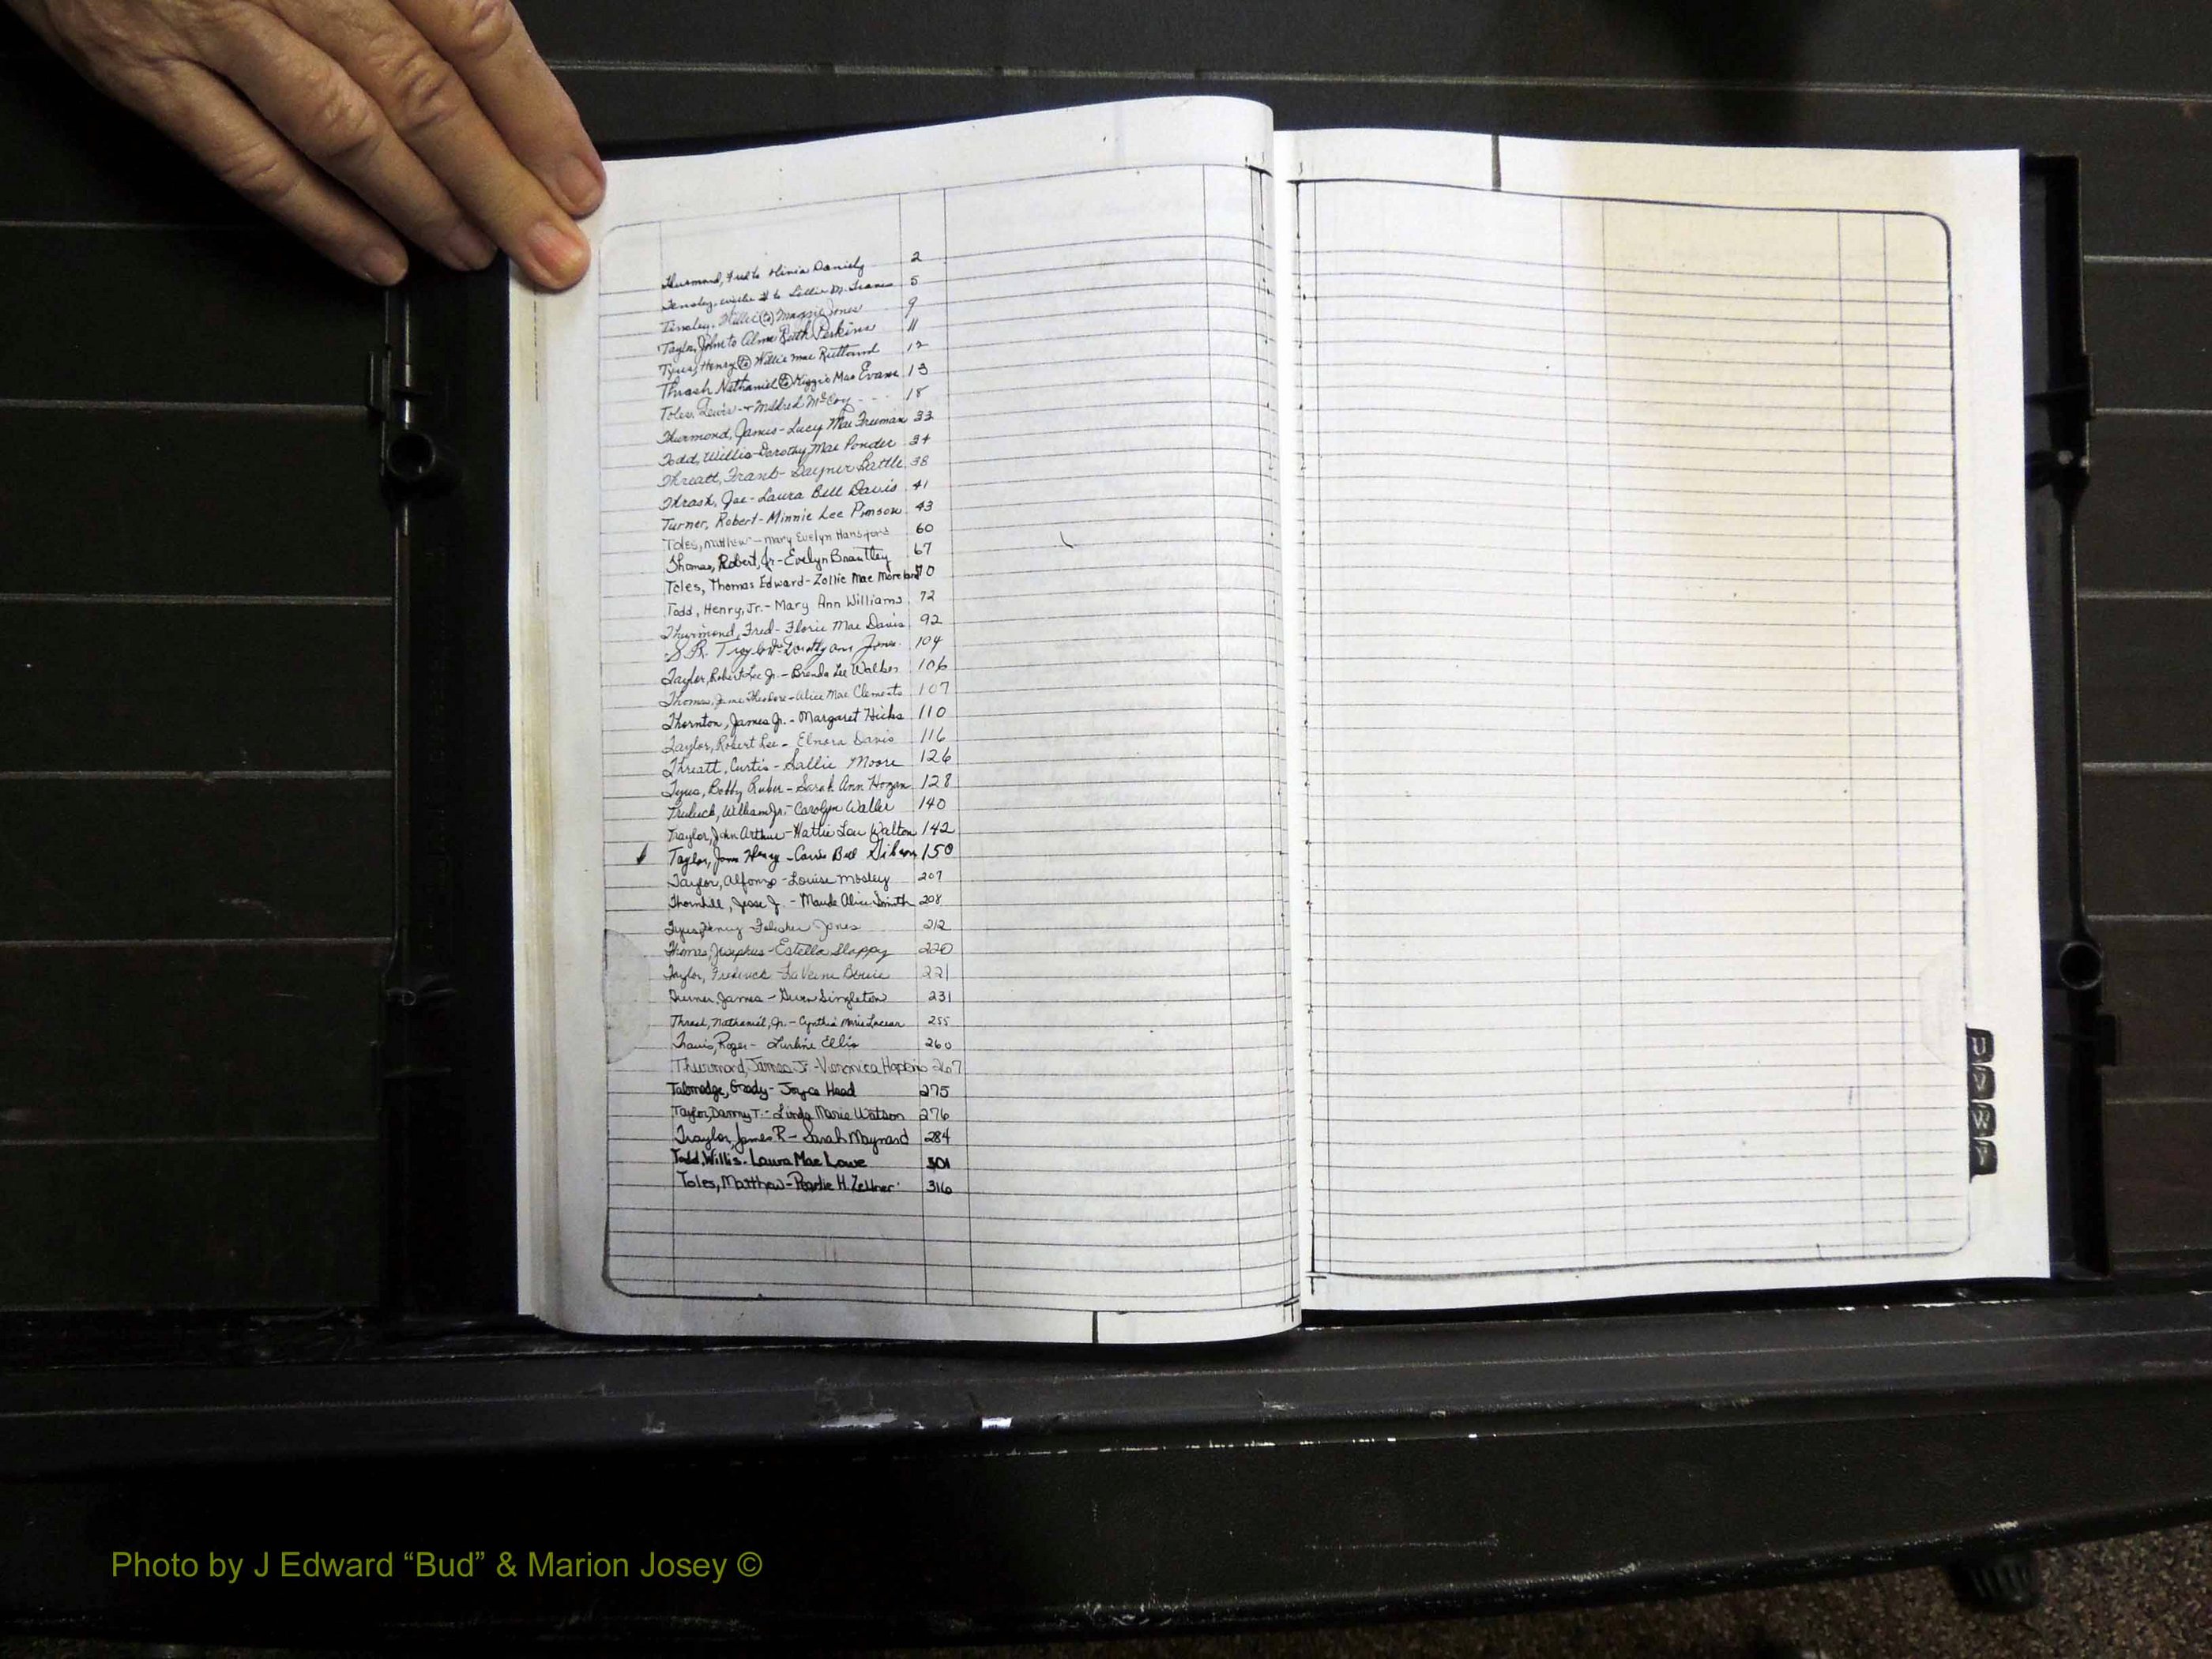 Thurmond, Fred to Olivia Daniely 2
Tensley, Willie to Lillie M. 5
Tinsley, Willie (to) Maggie Jones 9
Taylor, John to Alma Ruth Perkins 11
Tyus, Henry (to) Willie Mae Rutland 12
Thrash, Nathaniel (to) Mae Evans 13
Toles, Lewis - Mildred McCoy - - - 18
Thurmond, James - Lucy Mae Freeman 33
Todd, Willis - Dorothy Mae Ponder 34
Threatt, Frank - Battle 38
Thrash, Joe - Laura Bell Davis 41
Turner, Robert - Minnie Lee Pinson 43
Toles, Matthew - Mary Evelyn Hansford 60
Thomas, Robert, Jr. - Evelyn Brantley 67
Toles, Thomas Edward - Zollie Mae Moreland 70
Todd, Henry, Jr. - Mary Ann Williams 72
Thurmond, Fred - Florie Mae Davis 92
S.R. Dorothy Ann Jones 104
Taylor, Robert Lee Jr. - Brenda Lee Walker 106
Thomas, Theodore - Alice Mae Clements 107
Thornton, James Jr. - Margaret Hicks 110
Taylor, Robert Lee - Elnora Davis 116
Threatt, Curtis - Sallie Moore 126
Tyus, Bobby - Sarah Ann Hogan 128
William Jr. - Carolyn Waller 140
Traylor, John Arthur - Hattie Lou Walton 142
Taylor, John Henry - Carrie Bell Gibson 150
Taylor, Alfonzo - Louise Mosley 207
Thornhill, Jesse J. - Maude Alice Smith 208
Tyus, Henry - Jones 212
Thomas, Josephus - Estella Slappy 220
Taylor, Frederick - LaVerne 221
Turner, James - Gwen Singleton 231
Thrash, Nathaniel, Jr. - Cynthia Marie 255
Travis, Roger - Ellis 260
Thurmond, James Jr. - Veronica Hopkins 267
Talmadge, Grady - Joyce Head 275
Taylor, Danny T. - Linda Marie Watson 276
Traylor, James R - Sarah Maynard 284
Todd, Willis - Laura Mae Lowe 301
Toles, Matthew - Pearlie H. Zellner 316
U
V
W
Y
Photo by J Edward “Bud” & Marion Josey ©